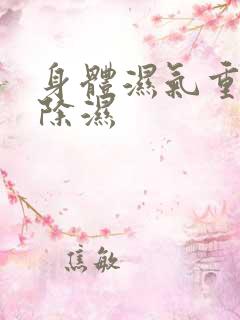 身體濕氣重
除濕
焦敏